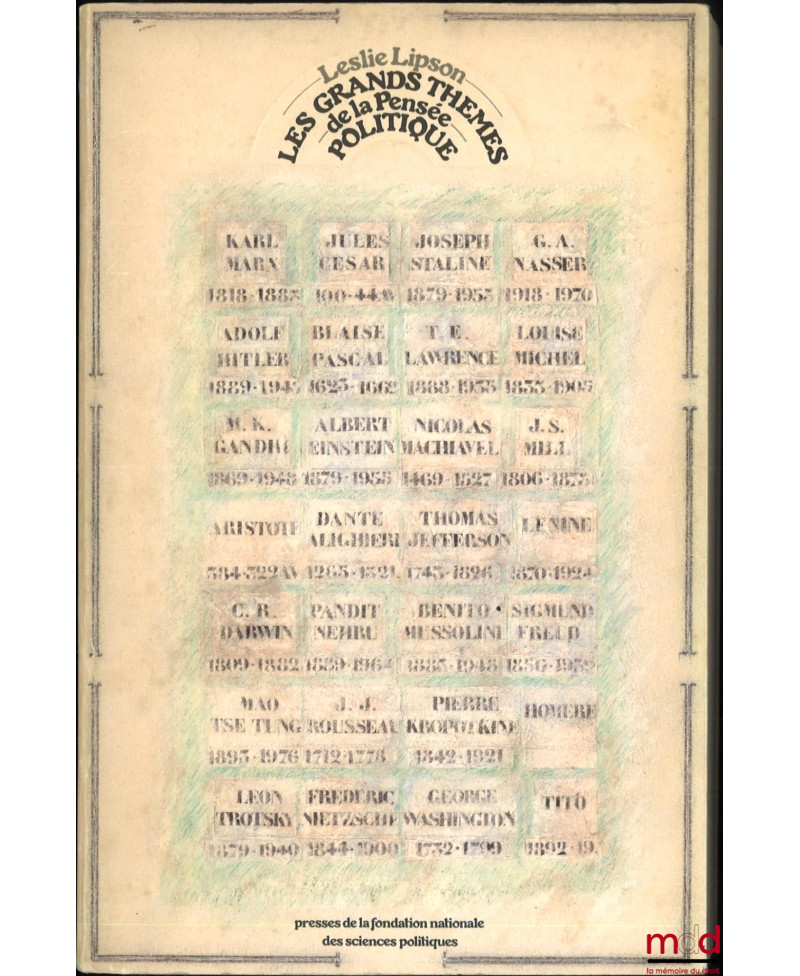 Leslie Lipson
LES GRANDS THEMES
de la Pensée
POLITIQUE
KARL
MARX
1818-1883
JULES
CESAR
100-44 AV
JOSEPH
STALINE
1879-1953
G. A.
NASSER
1918-1970
ADOLF
HITLER
1889-1945
BLAISE
PASCAL
1623-1662
T. E.
LAWRENCE
1888-1935
LOUISE
MICHEL
1833-1905
M. K.
GANDHI
1869-1948
ALBERT
EINSTEIN
1879-1955
NICOLAS
MACHIAVEL
1469-1527
J. S.
MILL
1806-1873
ARISTOTE
384-322 AV
DANTE
ALIGHIERI
1265-1321
THOMAS
JEFFERSON
1743-1826
LENINE
1870-1924
C. R.
DARWIN
1809-1882
PANDIT
NEHRU
1889-1964
BENITO
MUSSOLINI
1883-1945
SIGMUND
FREUD
1856-1939
MAO
TSE TUNG
1893-1976
J. J.
ROUSSEAU
1712-1778
PIERRE
KROPOTKINE
1842-1921
HOMERE
LEON
TROTSKY
1879-1940
FREDERIC
NIETZSCHE
1844-1900
GEORGE
WASHINGTON
1732-1799
TITO
1892-19
presses de la fondation nationale
des sciences politiques
mdd
la mémoire du droit